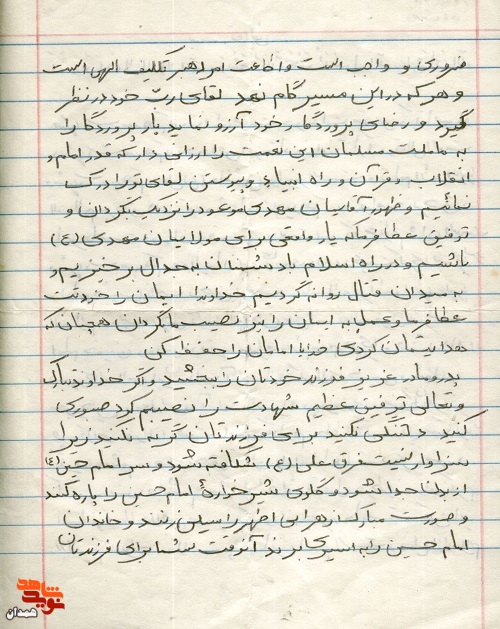 ضروری و واجب است و اطاعت امر رهبر تکلیف الهی است
و هر که در این مسیر گام نهد لقای ربّ خود در نظر
گیرد و رضای پروردگار خود آرزو نماید بار پروردگارا
به ما ملت مسلمان این نعمت را ارزانی دار که قدر امام و
انقلاب و قرآن و راه انبیاء و پیوستن لقای تو را درک
نمائیم و ظهور آقایمان مهدی موعود را نزدیک بگردان و
توفیق عطا فرما که یار واقعی برای مولایمان مهدی (ع)
باشیم و در راه اسلام با دشمنان به جدال برخیزیم و
به میدان قتال روانه گردیم خداوندا ایمان را خودت
عطا فرما و عمل به ایمان را نیز نصیب ما بگردان همچنان که
هدایتمان کردی خدایا امامان را حفظ کن
پدر و مادر عزیز فرزند خودتان را ببخشید و اگر خداوند تبارک
و تعالی توفیق عظیم شهادت را نصیبم کرد صبوری
کنید و دلتنگی نکنید برای فرزندتان گریه نکنید زیرا
سزاوار نیست فرق علی (ع) شکافته شود و سر امام حسین (ع)
از بدن جدا شود و گلوی شیرخوارهٔ امام حسین را پاره کنند
و صورت مبارک از هرا اطهر را سیلی زنند و خاندان
امام حسین را به اسیری برند آنوقت شما برای فرزندتان
نوید شاهد
همدان